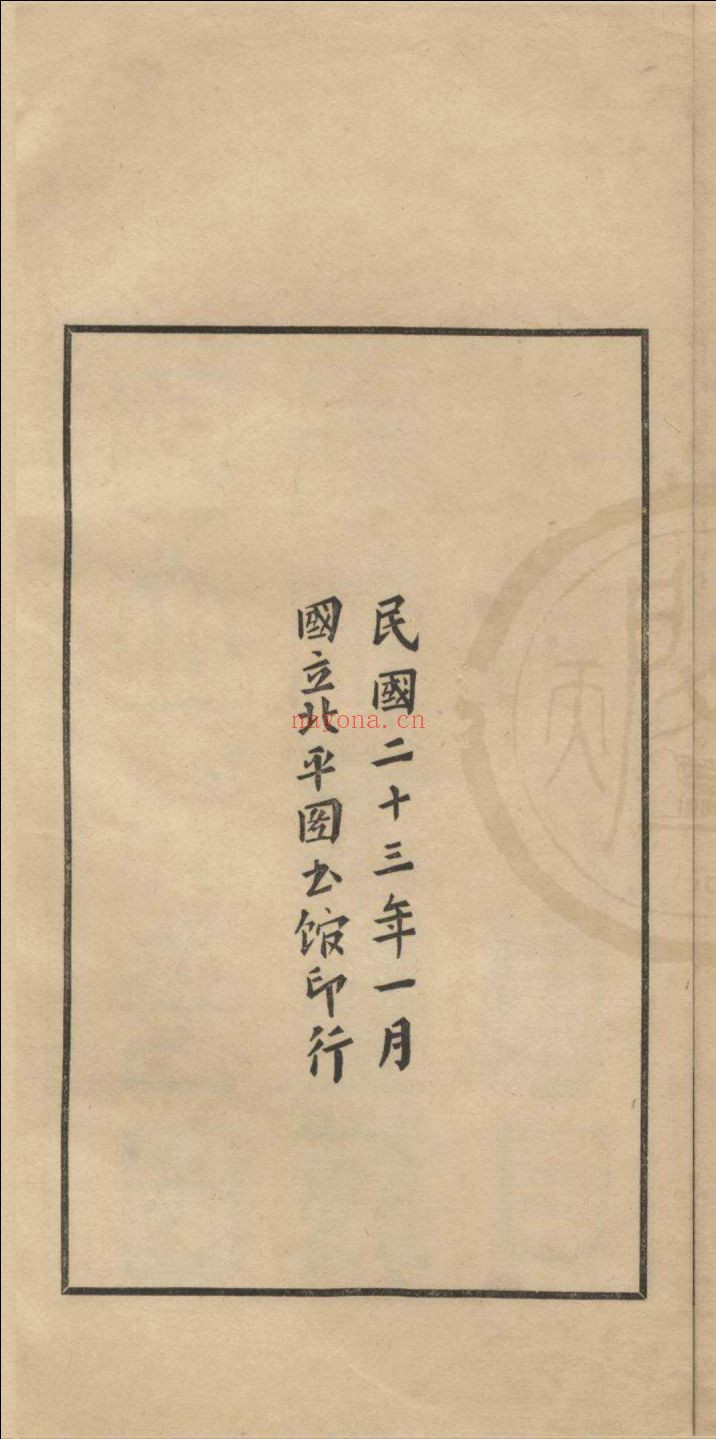 民國二十三年一月
國立北平图书馆印行
nayona.cn